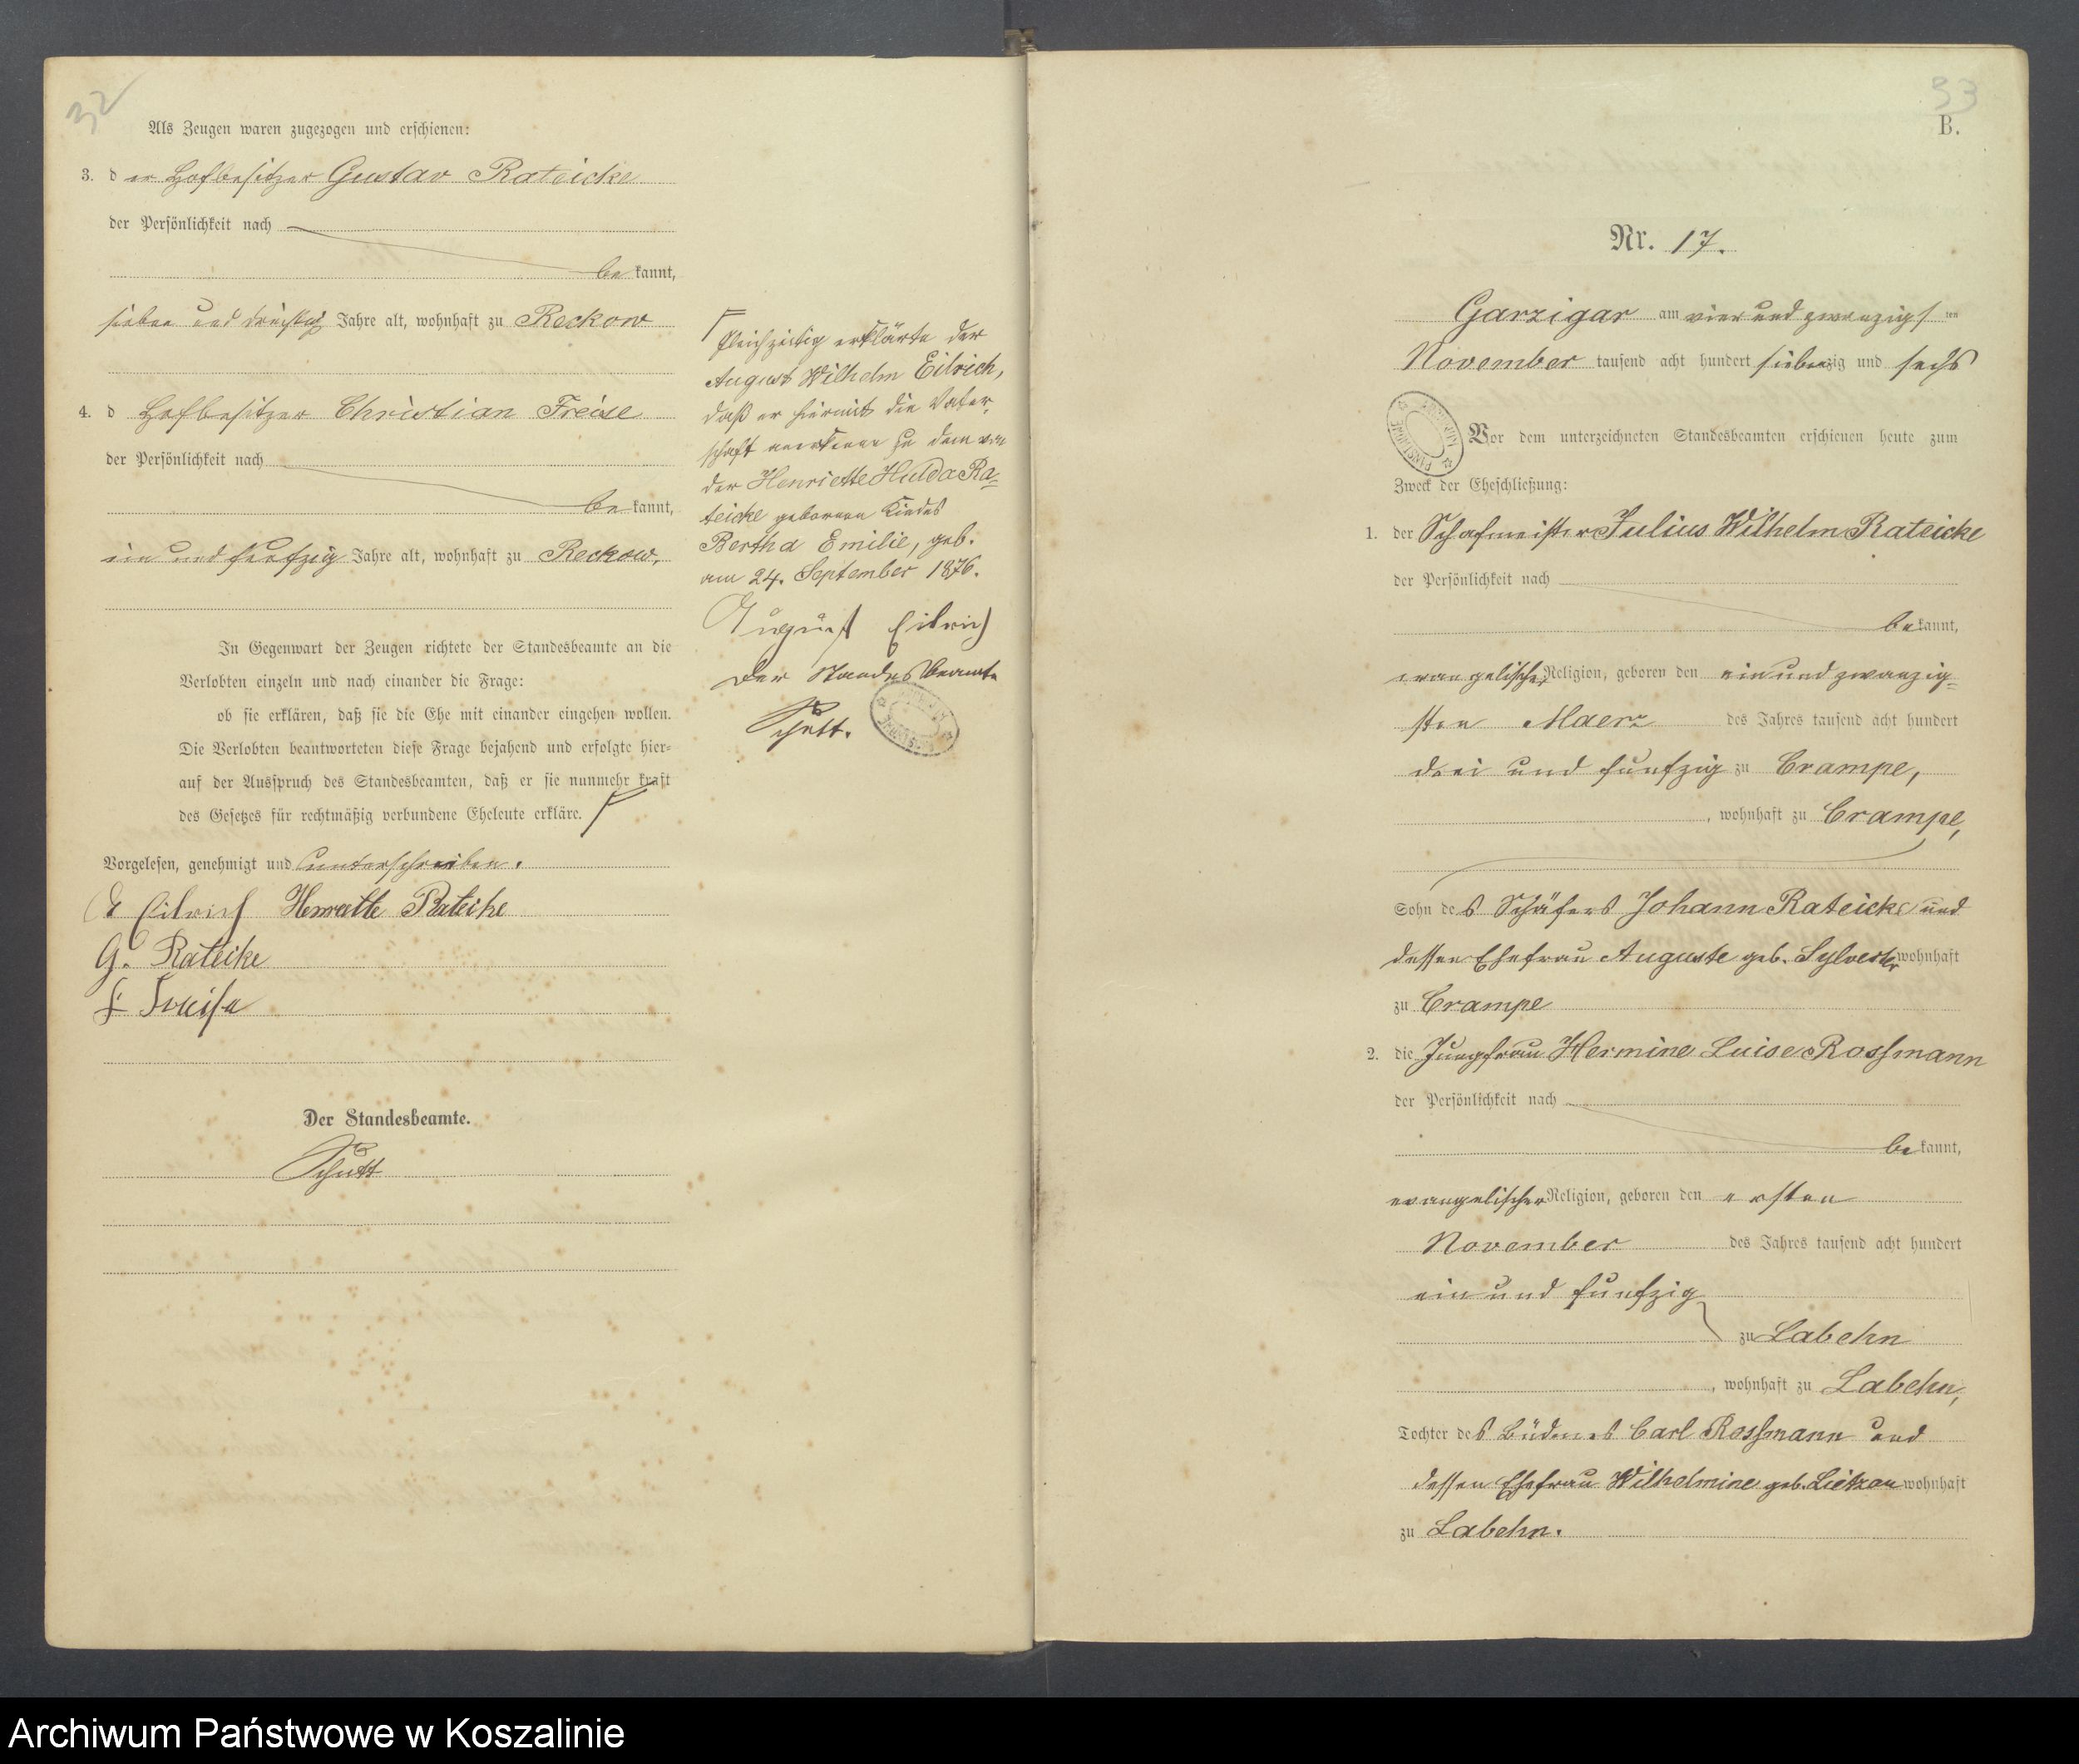 32
Als Zeugen waren zugezogen und erschienen:
3. der Hofbesitzer Gustav Rateicke
der Persönlichkeit nach
bekannt,
sieben und dreißig Jahre alt, wohnhaft zu Reckow
4. d Hofbesitzer Christian Freise
der Persönlichkeit nach
bekannt,
ein und funfzig Jahre alt, wohnhaft zu Reckow.
In Gegenwart der Zeugen richtete der Standesbeamte an die
Verlobten einzeln und nach einander die Frage:
ob sie erklären, daß sie die Ehe mit einander eingehen wollen.
Die Verlobten beantworteten diese Frage bejahend und erfolgte hier-
auf der Ausspruch des Standesbeamten, daß er sie nunmehr kraft
des Gesetzes für rechtmäßig verbundene Eheleute erkläre.
Vorgelesen, genehmigt und unterschrieben.
A Eilrich Henriette Rateicke
G. Rateicke
Freise
Der Standesbeamte.
Schütt
Gleichzeitig erklärte der
August Wilhelm Eilrich,
daß er hiermit die Vater-
schaft anerkenne zu dem von
der Henriette Hulda Ra-
teicke geborenen Kindes
Bertha Emilie, geb.
am 24. September 1876.
August Eilrich
Der Standesbeamte
Schütt.
33
B.
Nr. 17.
Garzigar am vier und zwanzigsten
November tausend acht hundert siebenzig und sechs
Vor dem unterzeichneten Standesbeamten erschienen heute zum
Zweck der Eheschließung:
1. der Schafmeister Julius Wilhelm Rateicke
der Persönlichkeit nach
bekannt,
evangelischer Religion, geboren den ein und zwanzig-
sten Maerz des Jahres tausend acht hundert
drei und funfzig zu Crampe,
, wohnhaft zu Crampe,
Sohn des Schäfers Johann Rateicke und
dessen Ehefrau Auguste geb. Sylvester wohnhaft
zu Crampe
2. die Jungfrau Hermine Luise Rossmann
der Persönlichkeit nach
bekannt,
evangelischer Religion, geboren den ersten
November des Jahres tausend acht hundert
ein und funfzig
zu Labehn
, wohnhaft zu Labehn,
Tochter des Büdners Carl Rossmann und
dessen Ehefrau Wilhelmine geb. Lietzau wohnhaft
zu Labehn.
Archiwum Państwowe w Koszalinie